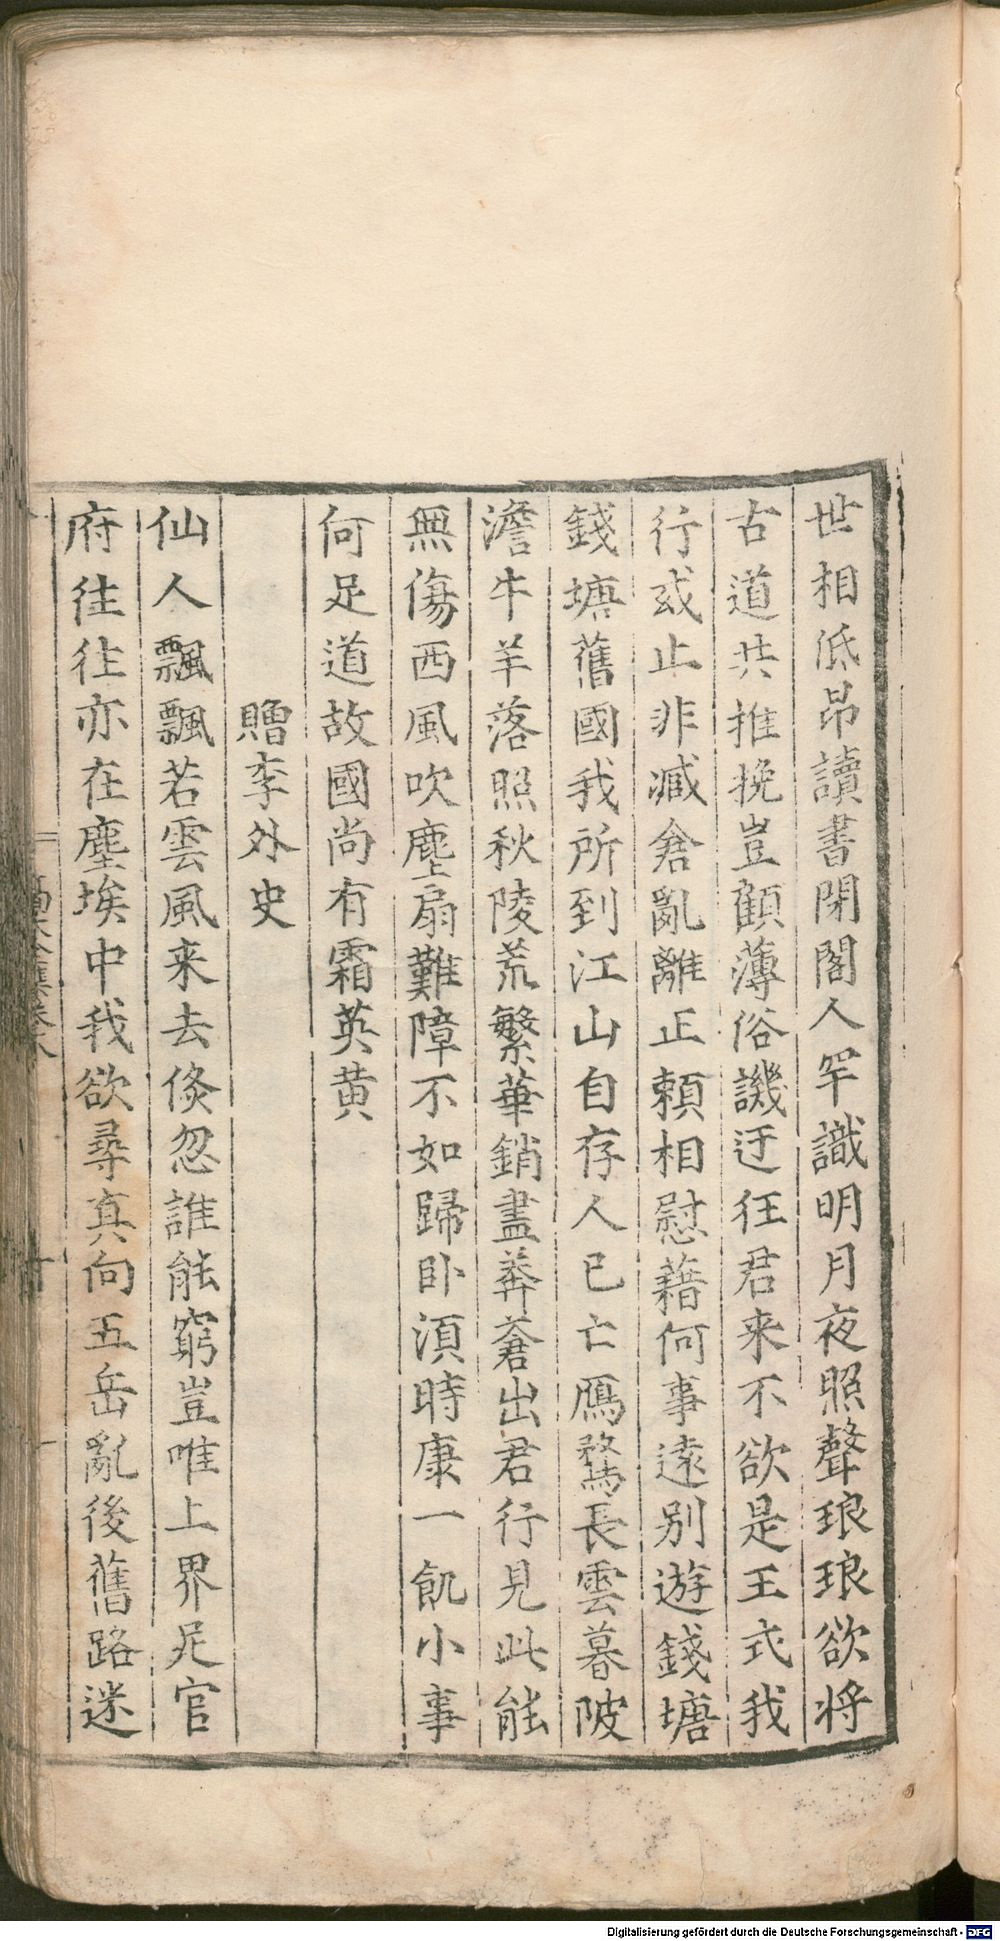 世相低昂讀書閉閣人罕識明月夜照聲琅琅欲將
古道共推挽豈顧薄俗譏迂狂君来不欲是王式我
行或止非臧倉亂離正頼相慰藉何事遠别遊錢塘
錢塘舊國我所到江山自存人已亡鴈鶩長雲暮陂
澹牛羊落照秋陵荒繁華銷盡莽蒼出君行見此能
無傷西風吹塵扇難障不如歸卧湏時康一飢小事
何足道故國尚有霜英黄
贈李外史
仙人飄飄若雲風来去倐忽誰能窮豈唯上界足官
府往往亦在塵埃中我欲尋真向五岳亂後舊路迷
Digitalisierung gefördert durch die Deutsche Forschungsgemeinschaft - DFG